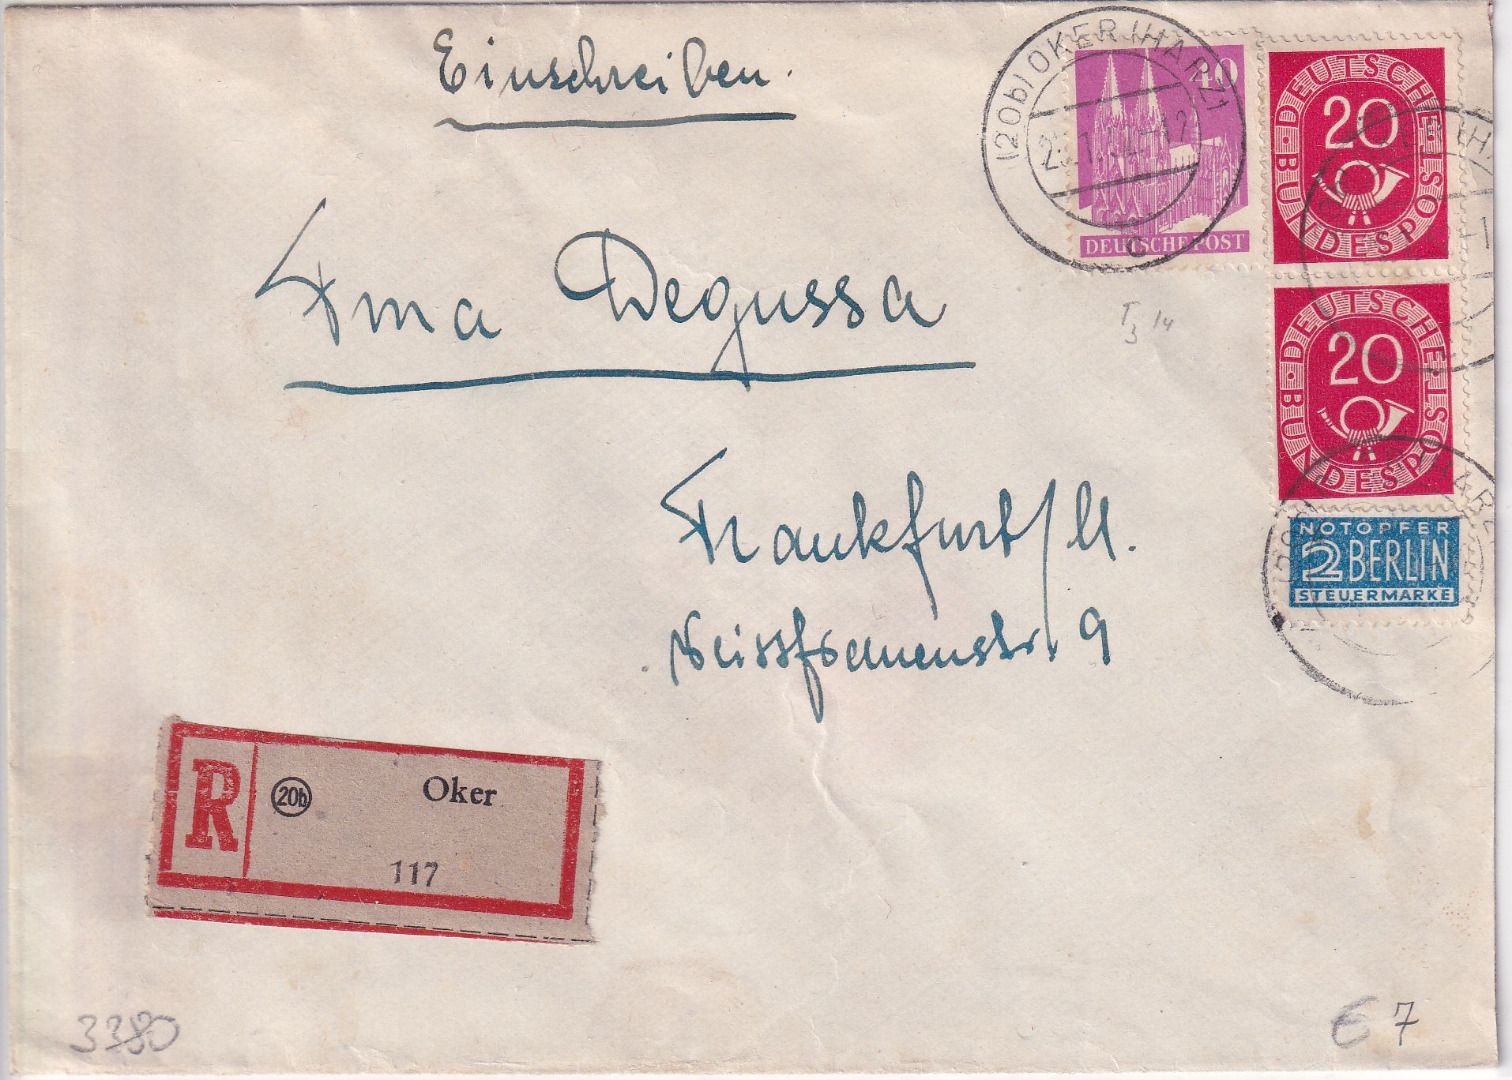 Einschreiben.
(20b) OKER (HARZ)
c
40
DEUTSCHE POST
20
DEUTSCHE BUNDESPOST
20
DEUTSCHE BUNDESPOST
NOTOPFER
2 BERLIN
STEUERMARKE
HARZ
Fma Degussa
Frankfurt/M.
Weissfrauenstr. 9
R
20b
Oker
117
3380
€ 7